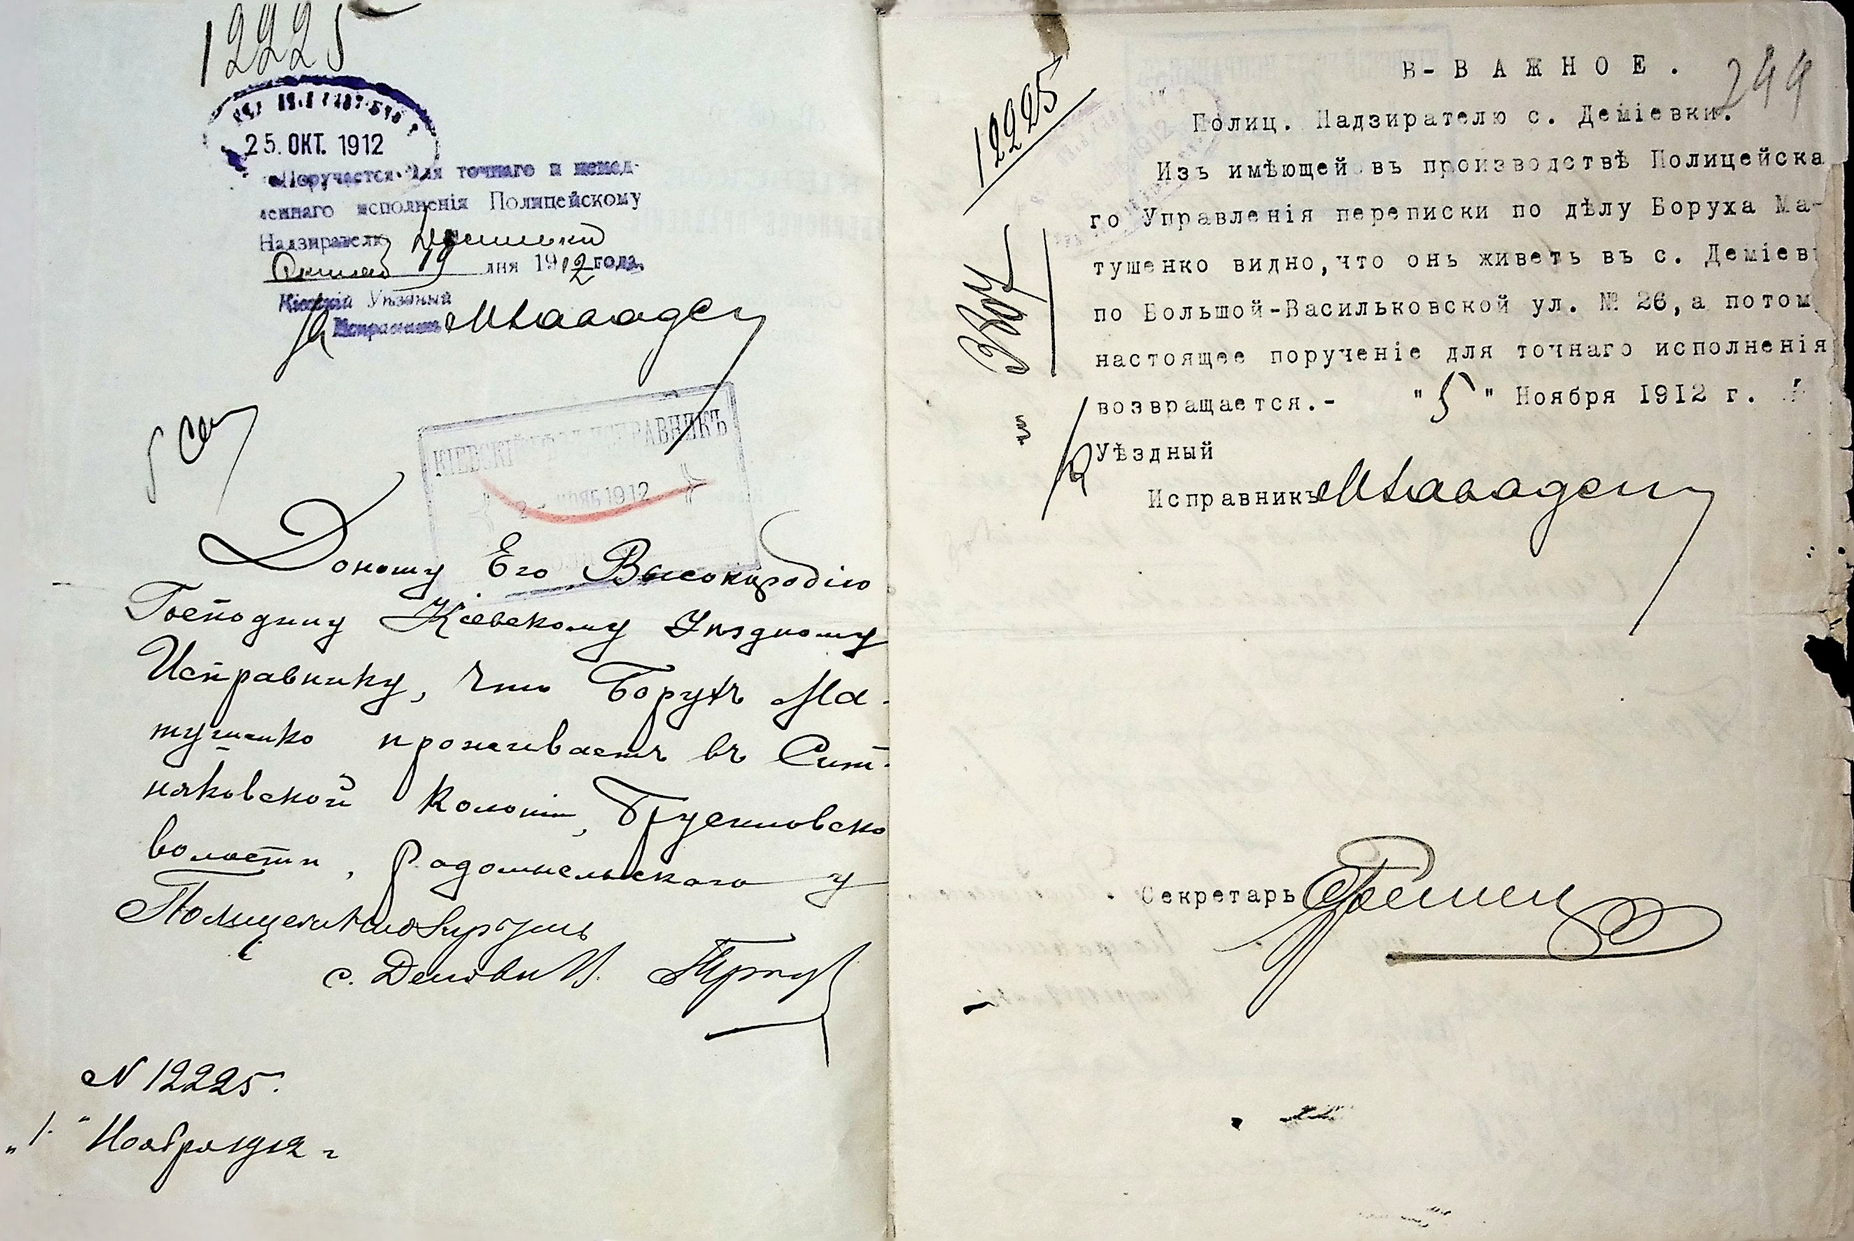 12225
25. ОКТ. 1912
Поручается для точнаго и немед-
леннаго исполненія Полицейскому
Надзирателю
дня 1912 года.
Кіевскій Уѣздный
Исправникъ
КІЕВСКІЙ ИСПРАВНИКЪ
НОЯБ 1912
Доношу Его Высокородію
Господину Кіевскому Уѣздному
Исправнику, что Борухъ Ма-
тушенко проживаетъ въ Сит-
няковской Колоніи, Брусиловско
волости, Радомысльскаго у
Полицейскій
с. Деміевки
N 12225.
"1." Ноября 1912 г
В-ВАЖНОЕ.
244
12225
Полиц. Надзирателю с. Деміевки.
Изъ имѣющей въ производствѣ Полицейска
го Управленія переписки по дѣлу Боруха Ма-
тушенко видно, что онъ живетъ въ с. Деміев
по Большой-Васильковской ул. № 26, а потом
настоящее порученіе для точнаго исполненія
возвращается.- "5" Ноября 1912 г.
Уѣздный
Исправникъ
Секретарь